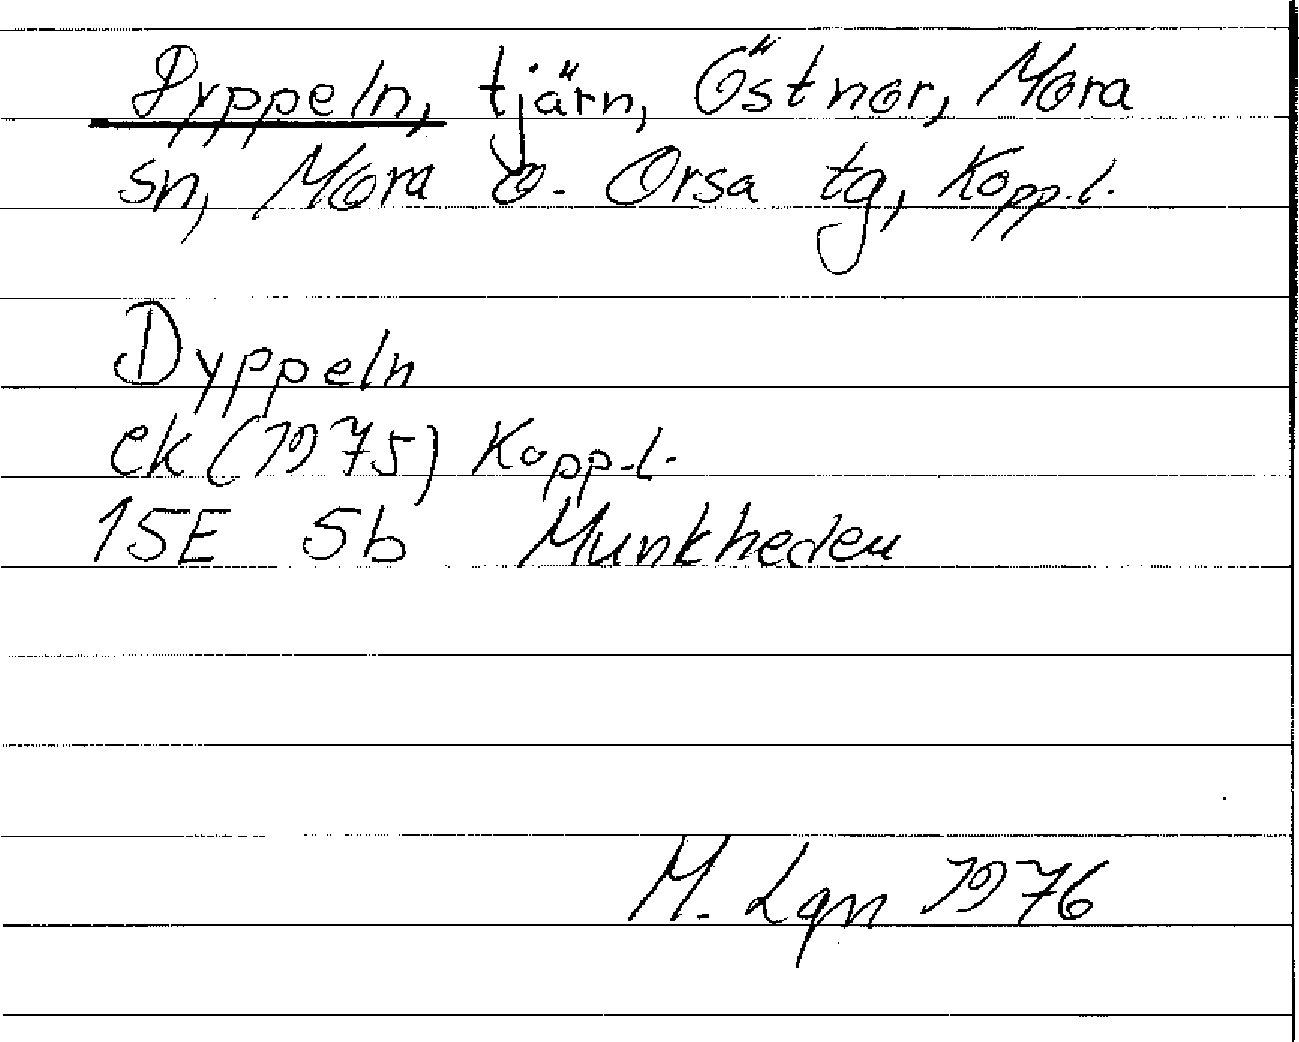 Dyppeln, tjärn, Östnor, Mora
sn, Mora o. Orsa tg, Kopp.l.
Dyppeln
ek (1975) Kopp.l.
15E 5b Munkheden
M. Lgn 1976